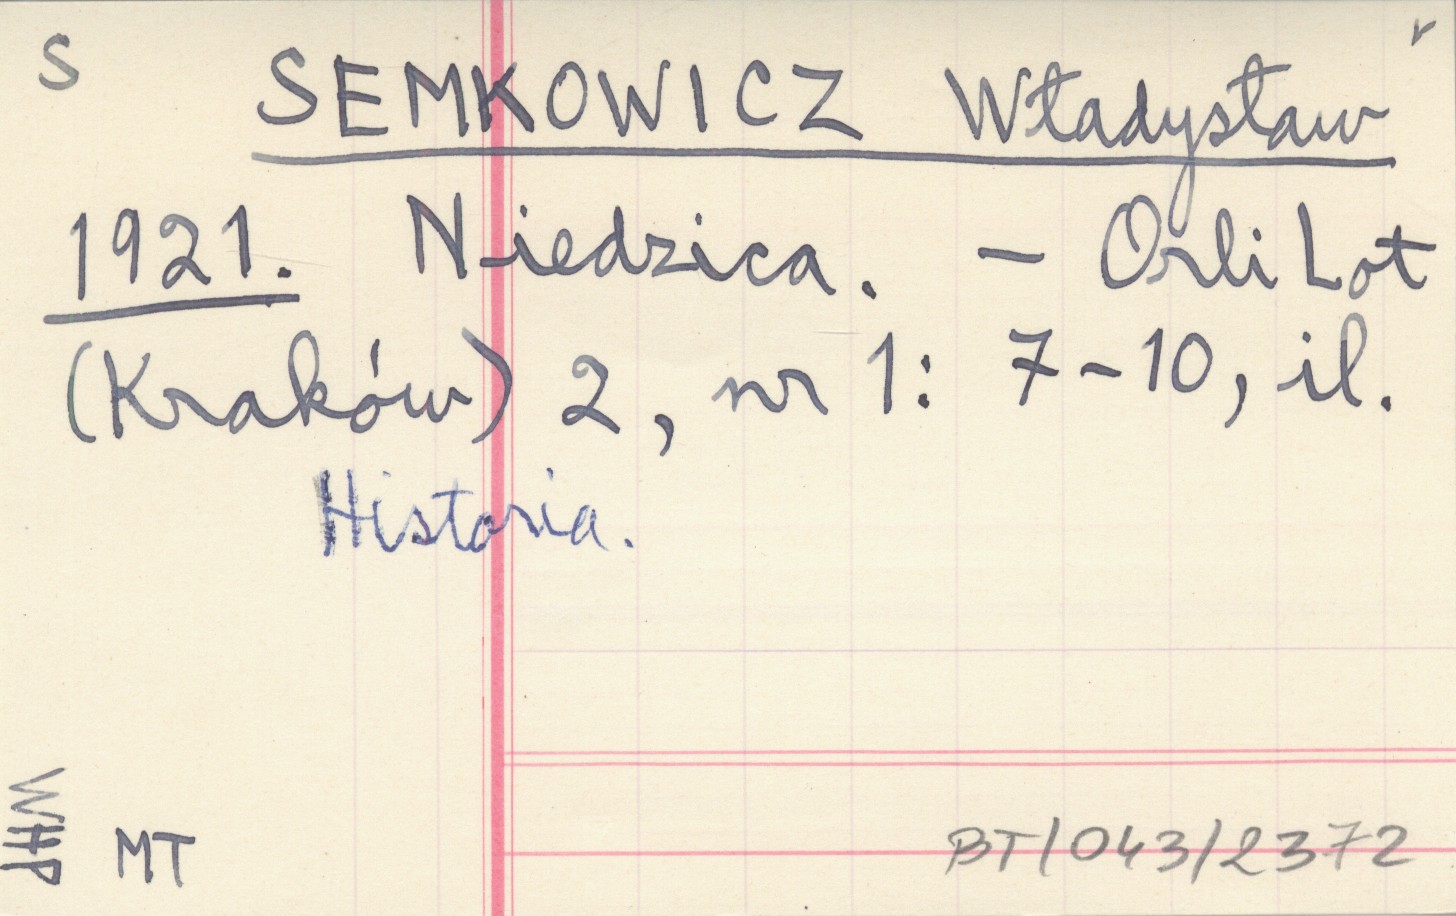 S
SEMKOWICZ Władysław
1921. Niedzica. – Orli Lot
(Kraków) 2, nr 1: 7-10, il.
Historia.
WHP
MT
BT/043/2372